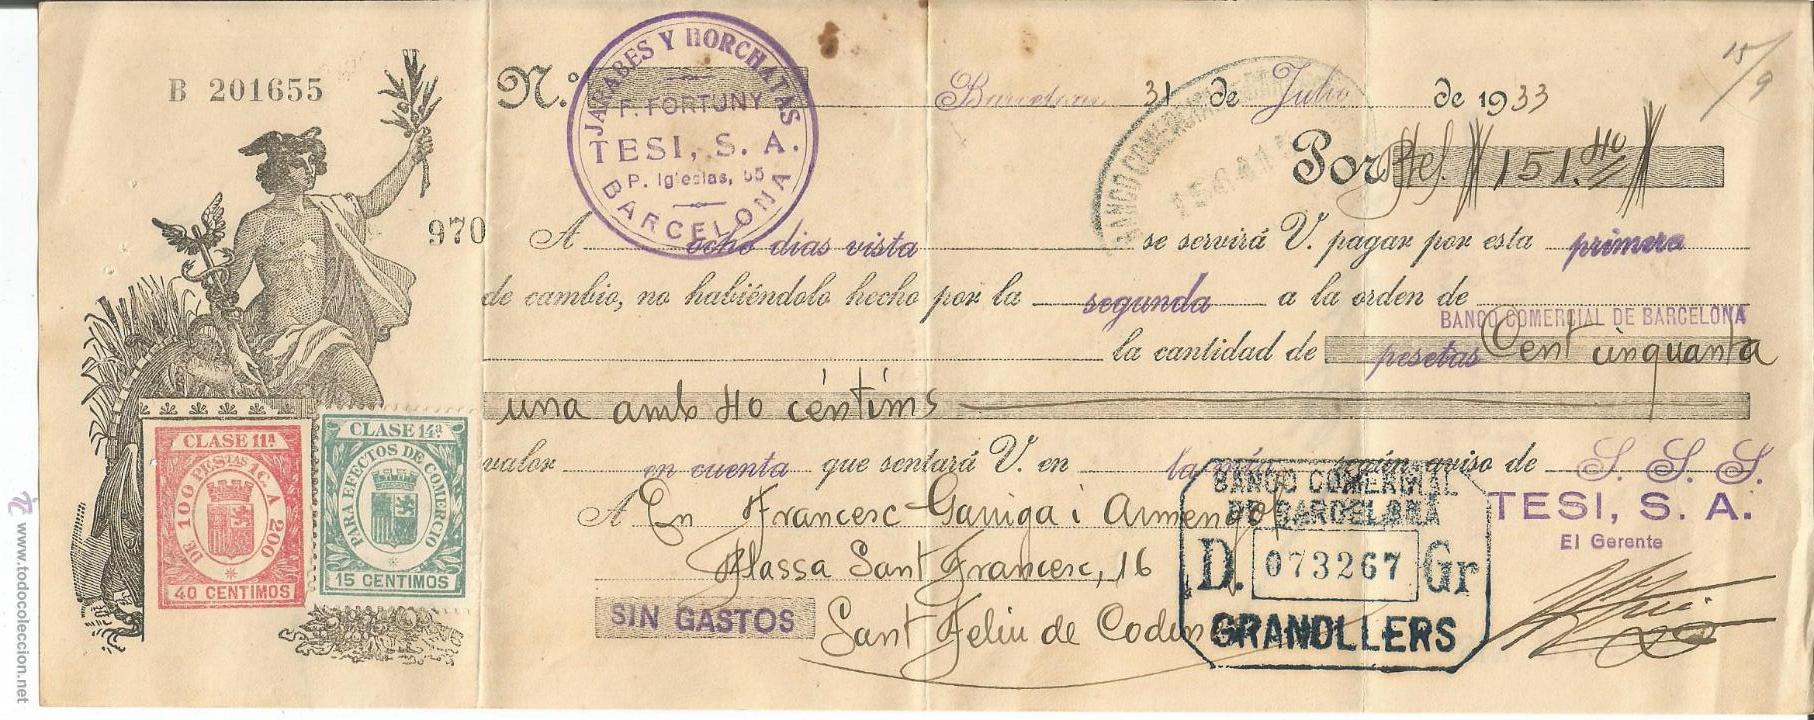 B 201655
970
N.º
JARABES Y HORCHATAS
F. FORTUNY
TESI, S. A.
P. Iglesias, 65
BARCELONA
Barcelona 31 de Julio de 1933
15/9
BANCO COMERCIAL
Por Ptes. 151.40
A ocho dias vista se servirá V. pagar por esta primera
de cambio, no habiéndolo hecho por la segunda a la orden de
BANCO COMERCIAL DE BARCELONA
la cantidad de pesetas Cent cinquanta
una amb 40 céntims
valor en cuenta que sentará V. en la mia según aviso de S. S. S.
TESI, S. A.
El Gerente
A En Francesc Garriga i Armengol
Plassa Sant Francesc, 16
Sant Feliu de Codines
SIN GASTOS
BANCO COMERCIAL
DE BARCELONA
D. 073267 Gr
GRANOLLERS
CLASE 11ª
DE 100 PESTAS 1C. A 200
40 CENTIMOS
CLASE 14ª
PARA EFECTOS DE COMERCIO
15 CENTIMOS
www.todocoleccion.net